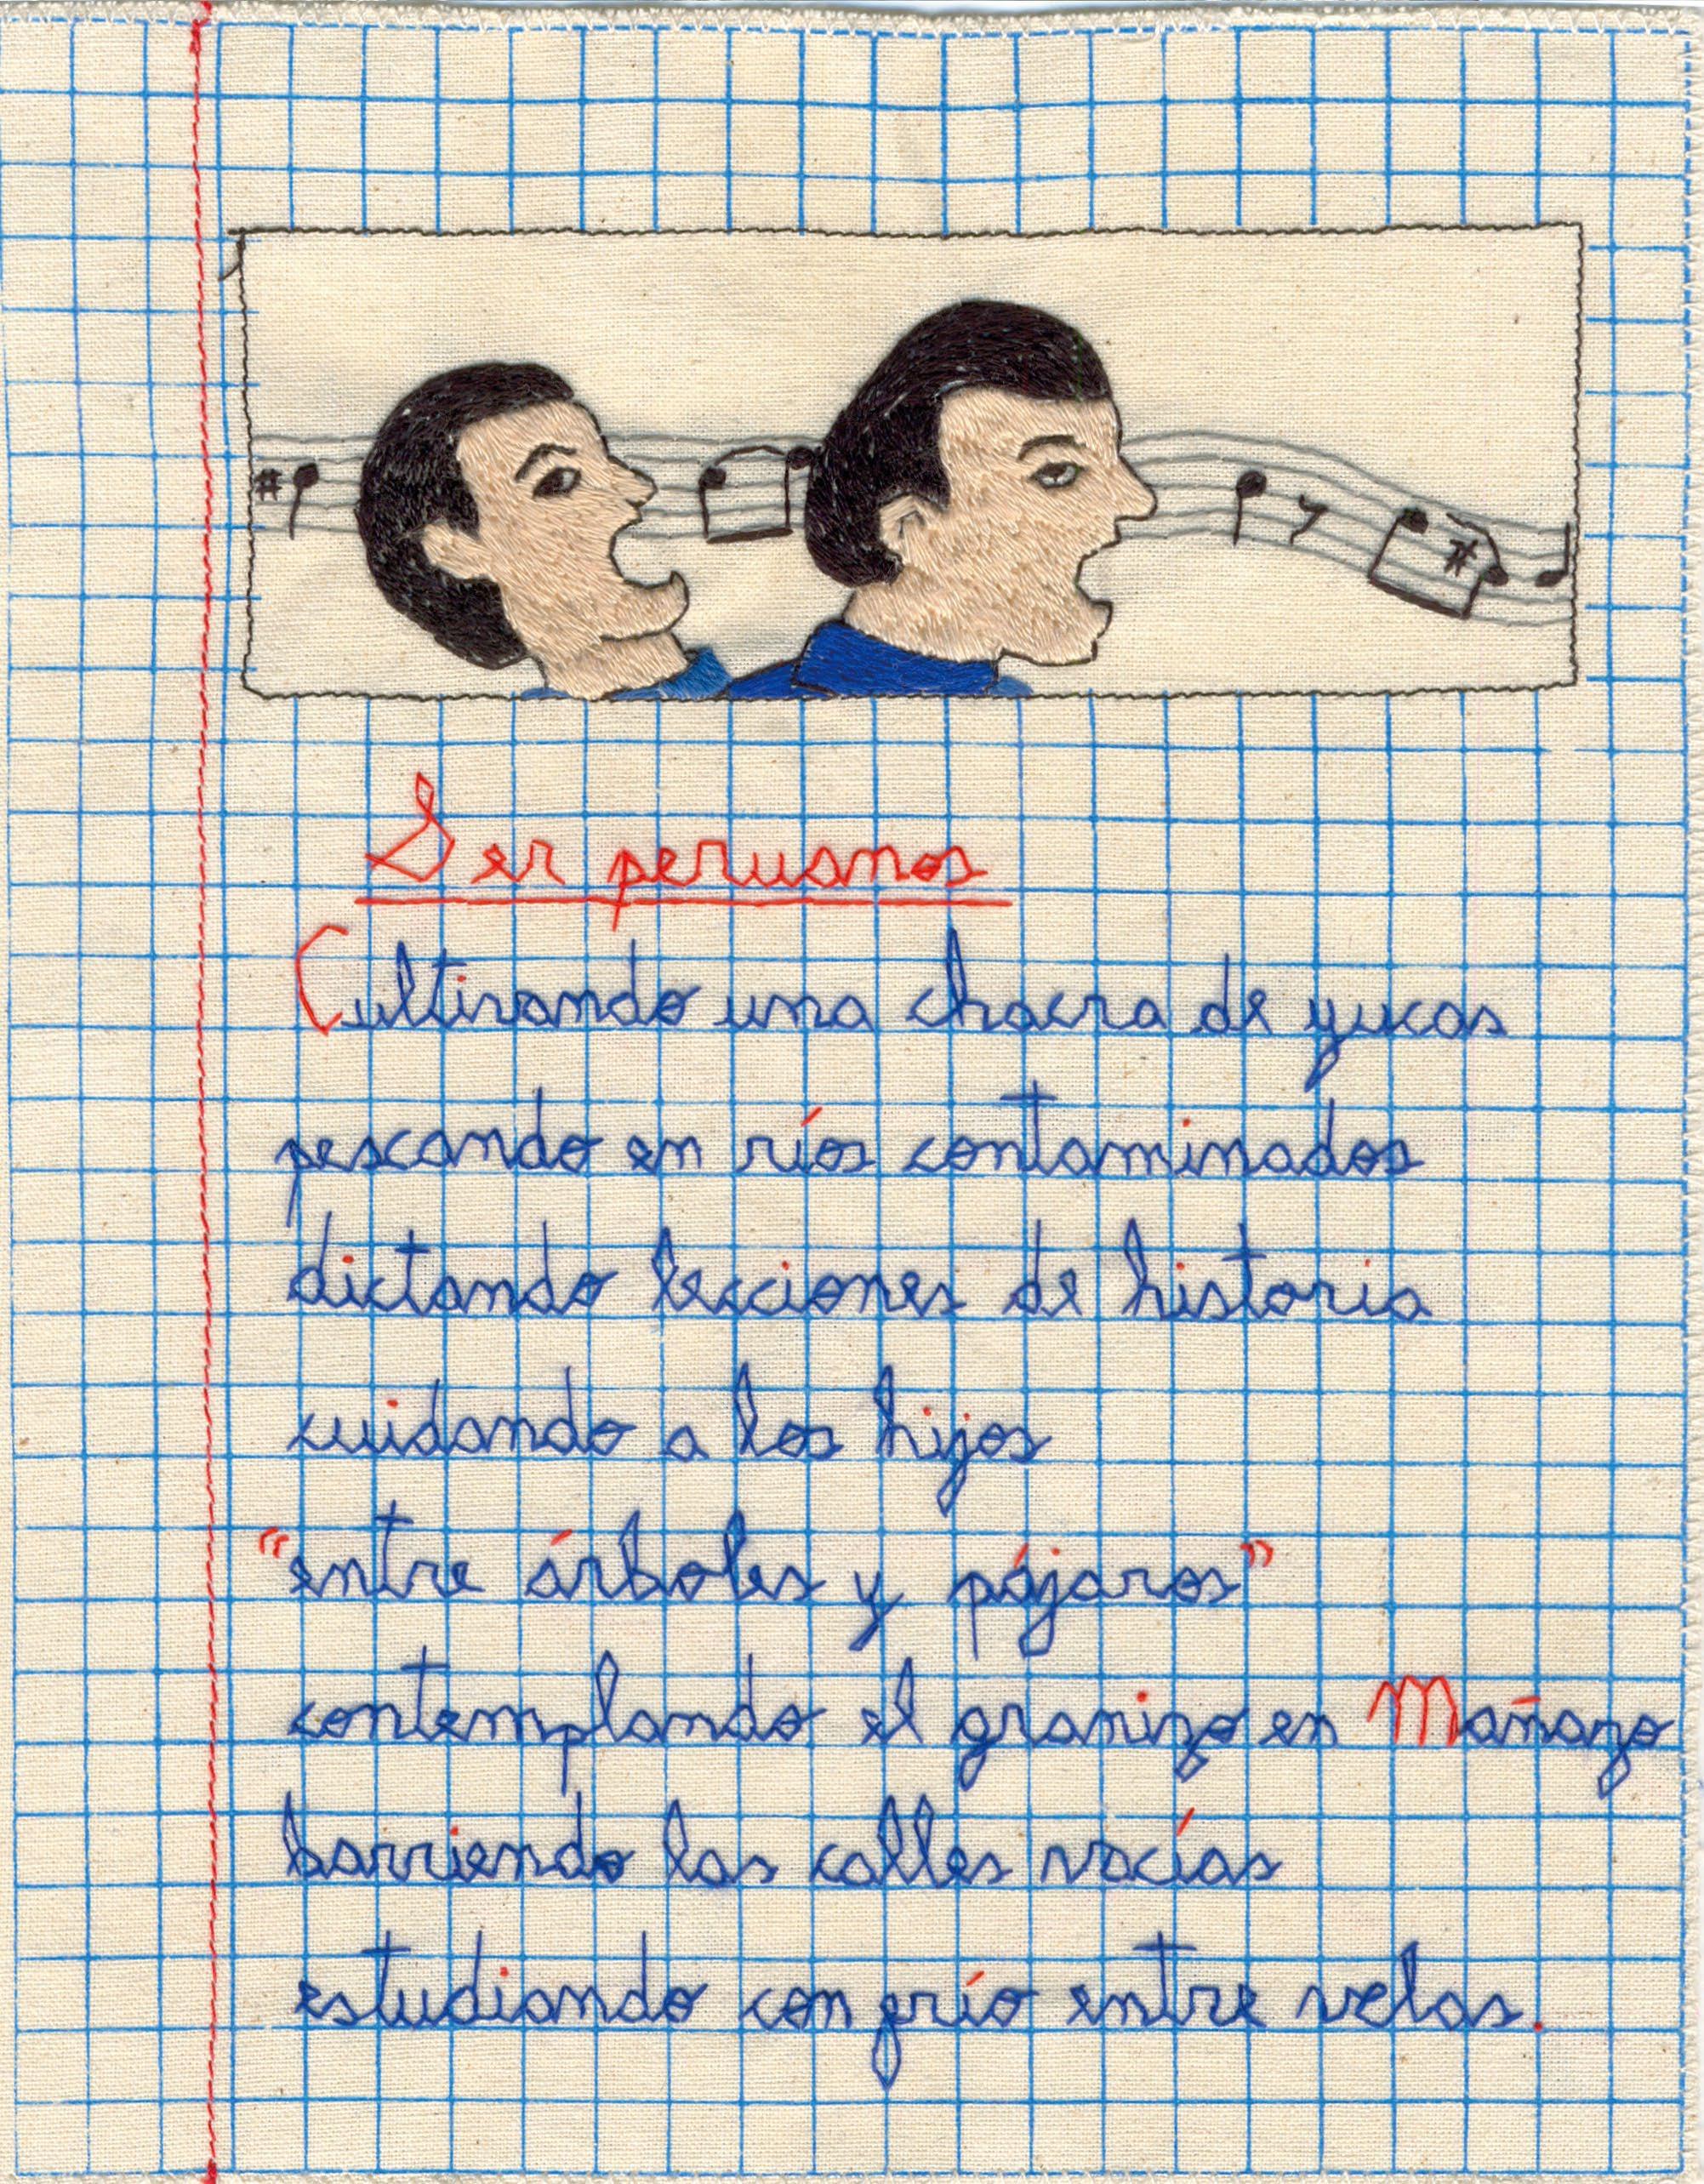 Ser peruanos
Cultivando una chacra de yucas
pescando en ríos contaminados
dictando lecciones de historia
cuidando a los hijos
“entre árboles y pájaros”
contemplando el granizo en Mañazo
barriendo las calles vacías
estudiando con frío entre velas.